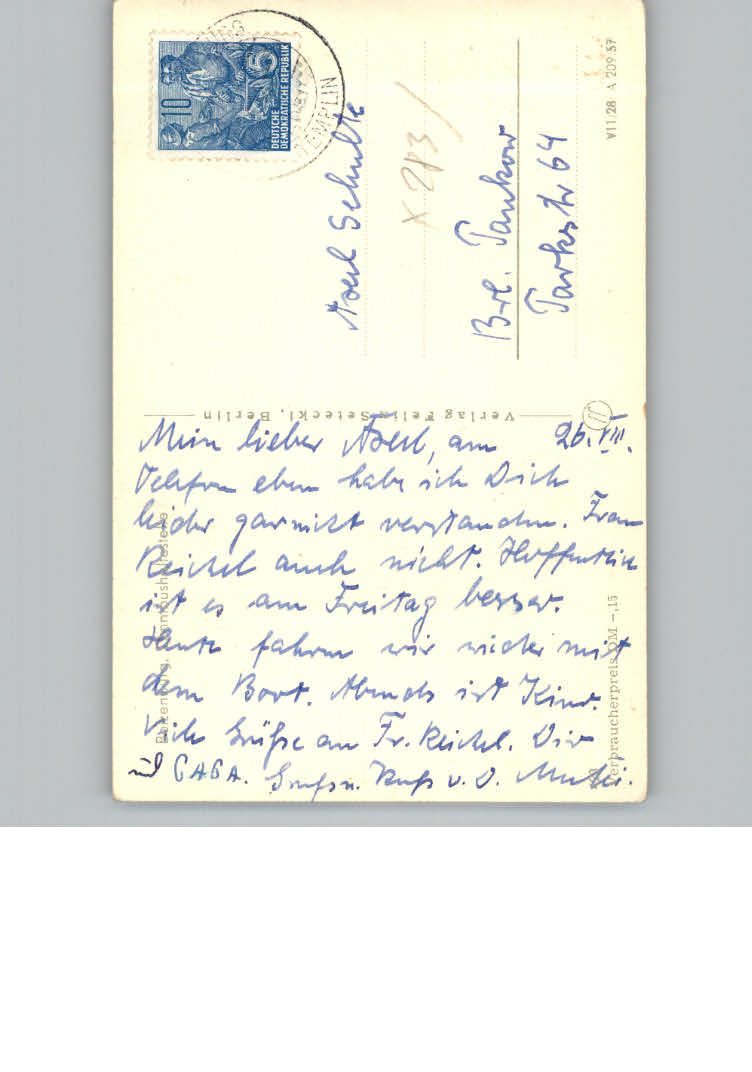 10
5
DEUTSCHE
DEMOKRATISCHE REPUBLIK
TEMPLIN
Axel Schulte
X 283/
Brl. Pankow
Parkstr 64
V11/28 A 209 57
Verlag Felix Setecki, Berlin
Mein lieber Axel, am 26. VIII.
Telefon eben habe ich Dich
leider garnicht verstanden. Frau
Reichel auch nicht. Hoffentlich
ist es am Freitag besser.
Heute fahren wir wieder mit
dem Boot. Abends ist Kino.
Viele Grüße an Fr. Reichel. Dir
und GAGA. Gruß u. Kuß v. D. Mutti.
Verbraucherpreis DM -,15